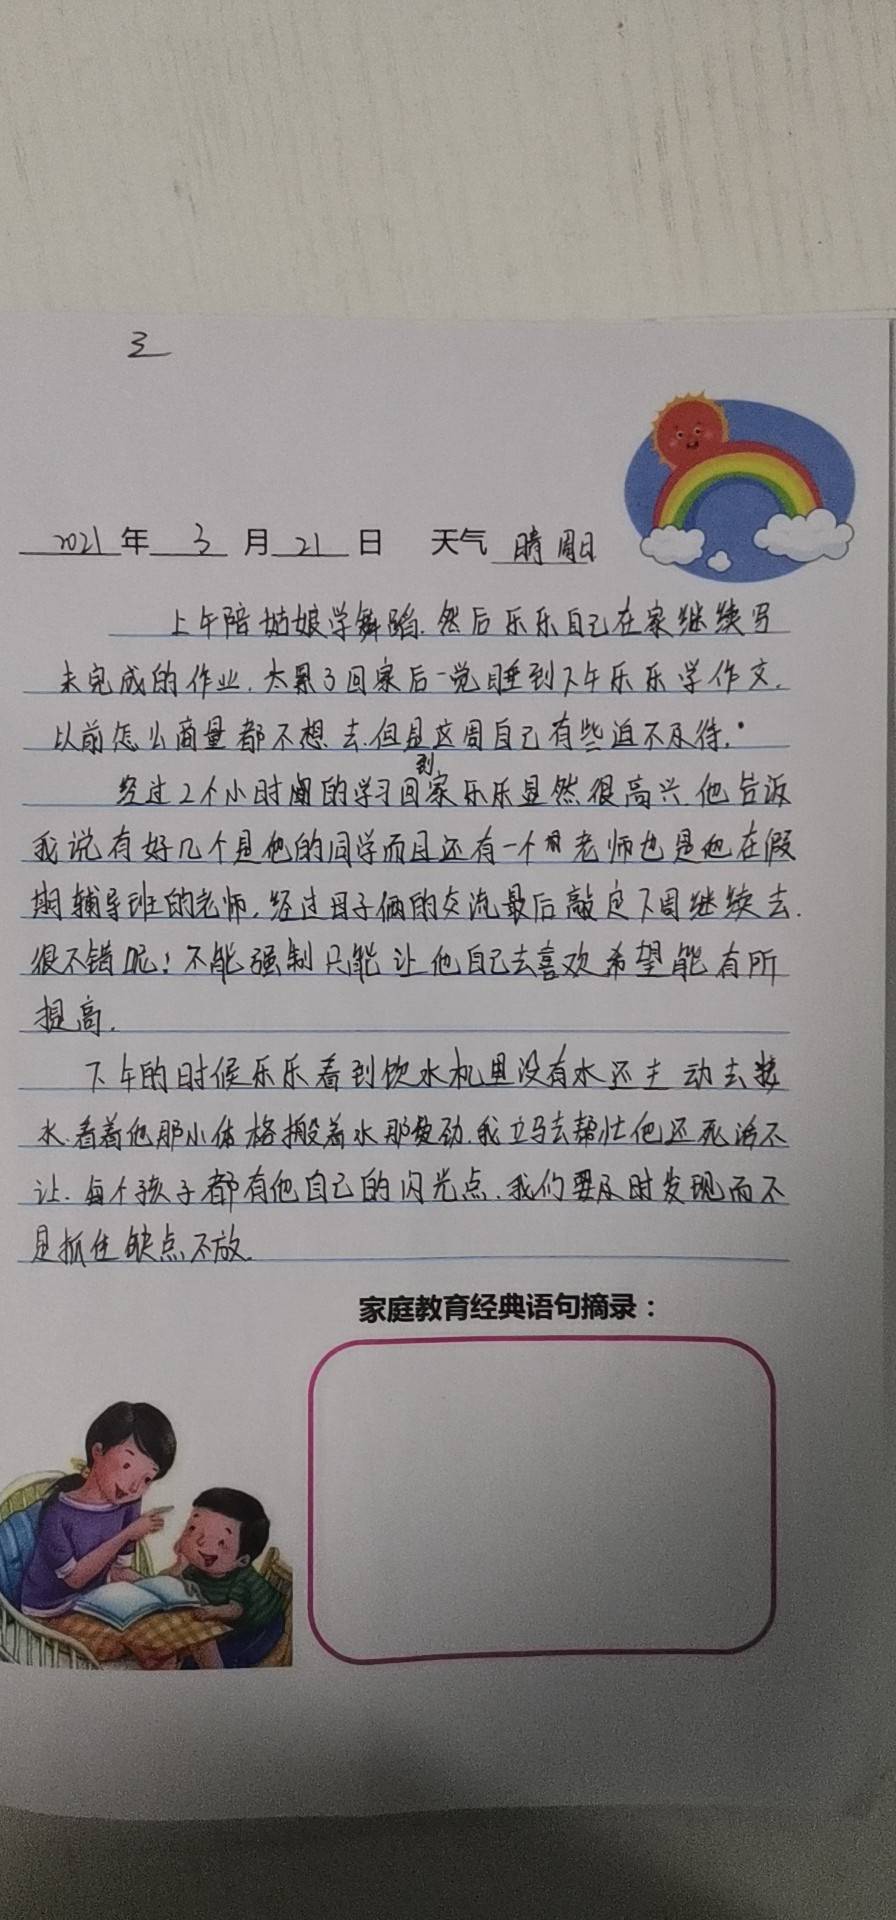 3
2021年 3 月 21 日 天气 晴 周日
上午陪姑娘学舞蹈.然后乐乐自己在家继续写
未完成的作业.太累了回家后一觉睡到下午乐乐学作文.
以前怎么商量都不想去.但是这周自己有些迫不及待.
经过2个小时的学习回到家乐乐显然很高兴.他告诉
我说有好几个是他的同学而且还有一个老师也是他在假
期辅导班的老师.经过母子俩的交流最后敲定下周继续去.
很不错呢!不能强制只能让他自己去喜欢希望能有所
提高.
下午的时候乐乐看到饮水机里没有水还主动去接
水.看着他那小体格搬着水那费劲.我立马去帮忙他还死活不
让.每个孩子都有他自己的闪光点.我们要及时发现而不
是抓住缺点不放.
家庭教育经典语句摘录：